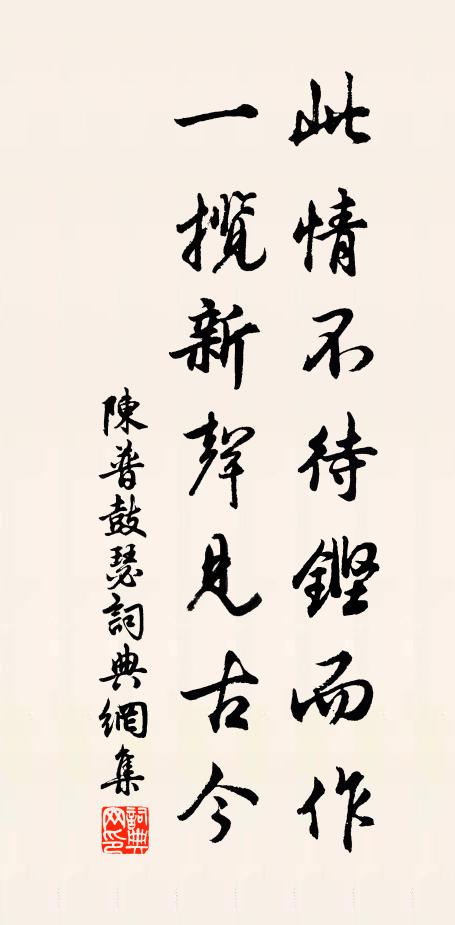 此情不待鏗而作
一攬新聲見古今
陳普鼓瑟詞典網集
詞典網印